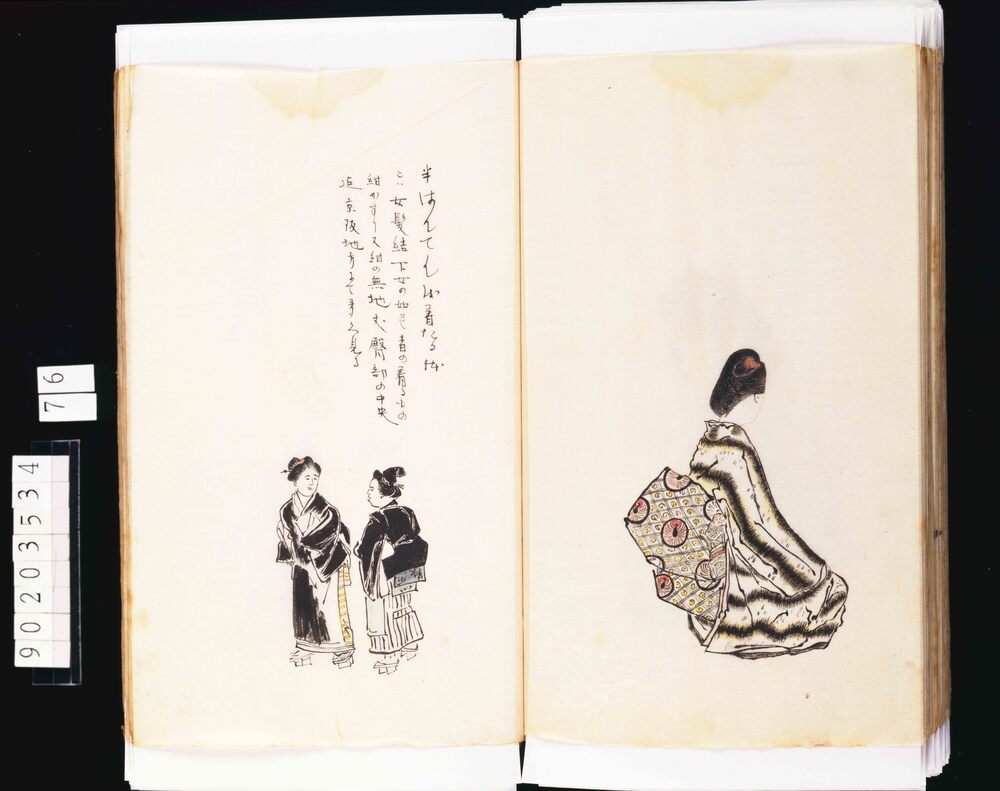 半はんてんを着たる体
こハ女髪結下女の如き者の着るもの
紺かすり又紺の無地丈臀部の中央
迄京阪地方にて多く見る
76
90203534